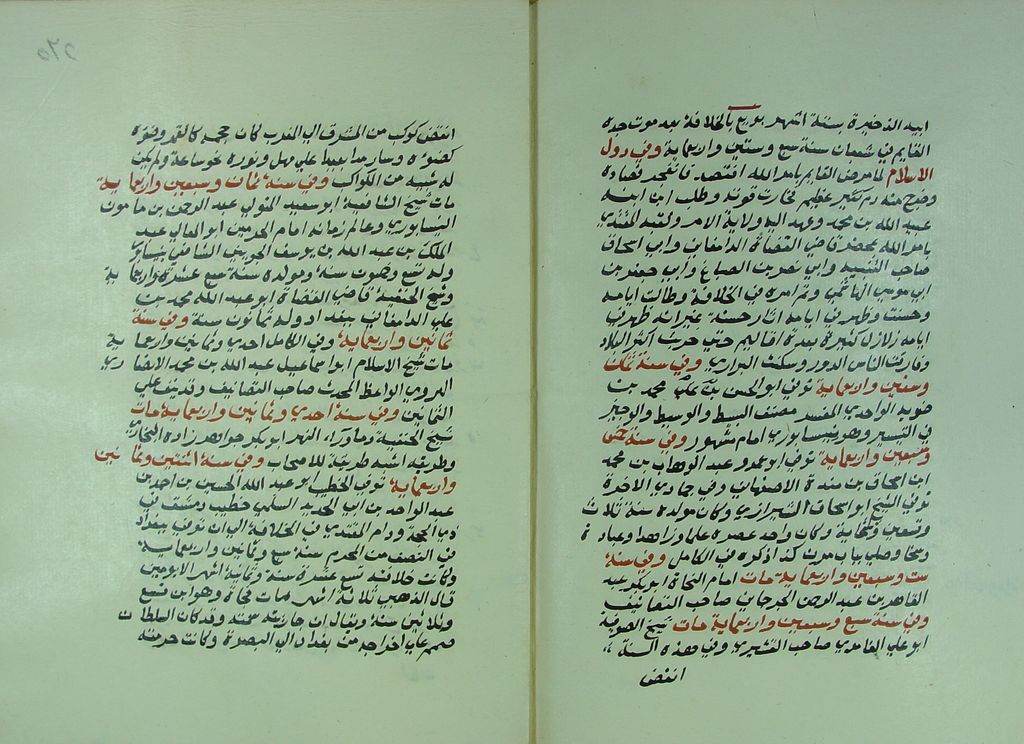 ابيه الذخيرة بستة اشهر بويع بالخلافة بعد موت جده
القايم في شعبان سنة سبع وستين واربعماية وفي دول
الاسلام لما مرض القايم بامر الله افتصد فانفجر فصاده
وخرج منه دم كثير عظيم فخارت قوته وطلب ابن ابنه
عبيد الله بن محمد وعهد اليه ولاية الامر ولقبه المقتدي
بامر الله بمحضر قاضي القضاة الدامغاني وابي اسحاق
صاحب التنبيه وابي نصر بن الصباغ وابي جعفر بن
ابي موسي الهاشمي وتم امره في الخلافة وطالت ايامه
وحسنت وظهر في ايامه اثار حسنة غير انه ظهر في
ايامه زلازل كثيرة بعدة اقاليم حتي خربت اكثر البلاد
وفارقت الناس الدور وسكنت البراري وفي سنة ثمان
وستين واربعماية توفي ابو الحسن بن علي محمد بن
متويه الواحدي المفسر مصنف البسيط والوسيط والوجيز
في التفسير وهو نيسابوري امام مشهور وفي سنة خمس
وسبعين واربعماية توفي ابو عمرو عبد الوهاب بن محمد
ابن اسحاق بن مندة الاصفهاني وفي جمادي الاخرة
توفي الشيخ ابو اسحاق الشيرازي وكان مولده سنة ثلاث
وتسعين وثلثماية وكان واحد عصره علما وزاهدا وعبادة
وسخا وصلي بباب كذا ذكره في الكامل وفي سنة
ست وسبعين واربعماية مات امام النحاة ابو بكر عبد
القاهر بن عبد الرحمن الجرجاني صاحب التصانيف
وفي سنة سبع وسبعين واربعماية مات شيخ الصوفية
ابو علي الفامدي صاحب القشيري وفي هذه السنة
انقض
٢٦٥
انقض كوكب من المشرق الي المغرب كان حجمه كالقمر وضوه
كضوه وسار مدا بعيدا علي مهل ونوره نحو ساعة ولم يكن
له شبيه من الكواكب وفي سنة ثمان وسبعين واربعماية
مات شيخ الشافعية ابو سعيد المتولي عبد الرحمن بن مامون
النيسابوري وعالم زمانه امام الحرمين ابو المعالي عبد
الملك بن عبد الله بن يوسف الجويني الشافعي بنيسابور
وله تسع وخمسون سنة ومولده سنة سبع عشرة واربعماية
وشيخ الحنفية قاضي القضاة ابو عبد الله محمد بن
علي الدامغاني ببغداد وله ثمانون سنة وفي سنة
ثمانين واربعماية وفي الكامل احدي وثمانين واربعماية
مات شيخ الاسلام ابو اسماعيل عبد الله بن محمد الانصاري
الهروي الواعظ المحدث صاحب التصانيف وقد نيف علي
الثمانين وفي سنة احدي وثمانين واربعماية مات
شيخ الحنفية وما وراء النهر ابو بكر خواهر زاده البخاري
وطريقه اشبه طريقة للاصحاب وفي سنة اثنتين وثمانين
واربعماية توفي الخطيب ابو عبد الله الحسين بن احمد بن
عبد الواحد بن ابي الحديد السلمي خطيب دمشق في
ذي الحجة ودام المقتدي في الخلافة الي ان توفي ببغداد
في النصف من المحرم سنة سبع وثمانين واربعماية
وكانت خلافته تسع عشرة سنة وثمانية اشهر الا يومين
قال الذهبي ثلاثة اشهر ومات فجاة وهو ابن تسع
وثلاثين سنة ويقال ان جاريته سمته وقد كان السلطان
صمم علي اخراجه من بغداد الي البصرة وكانت حرمته